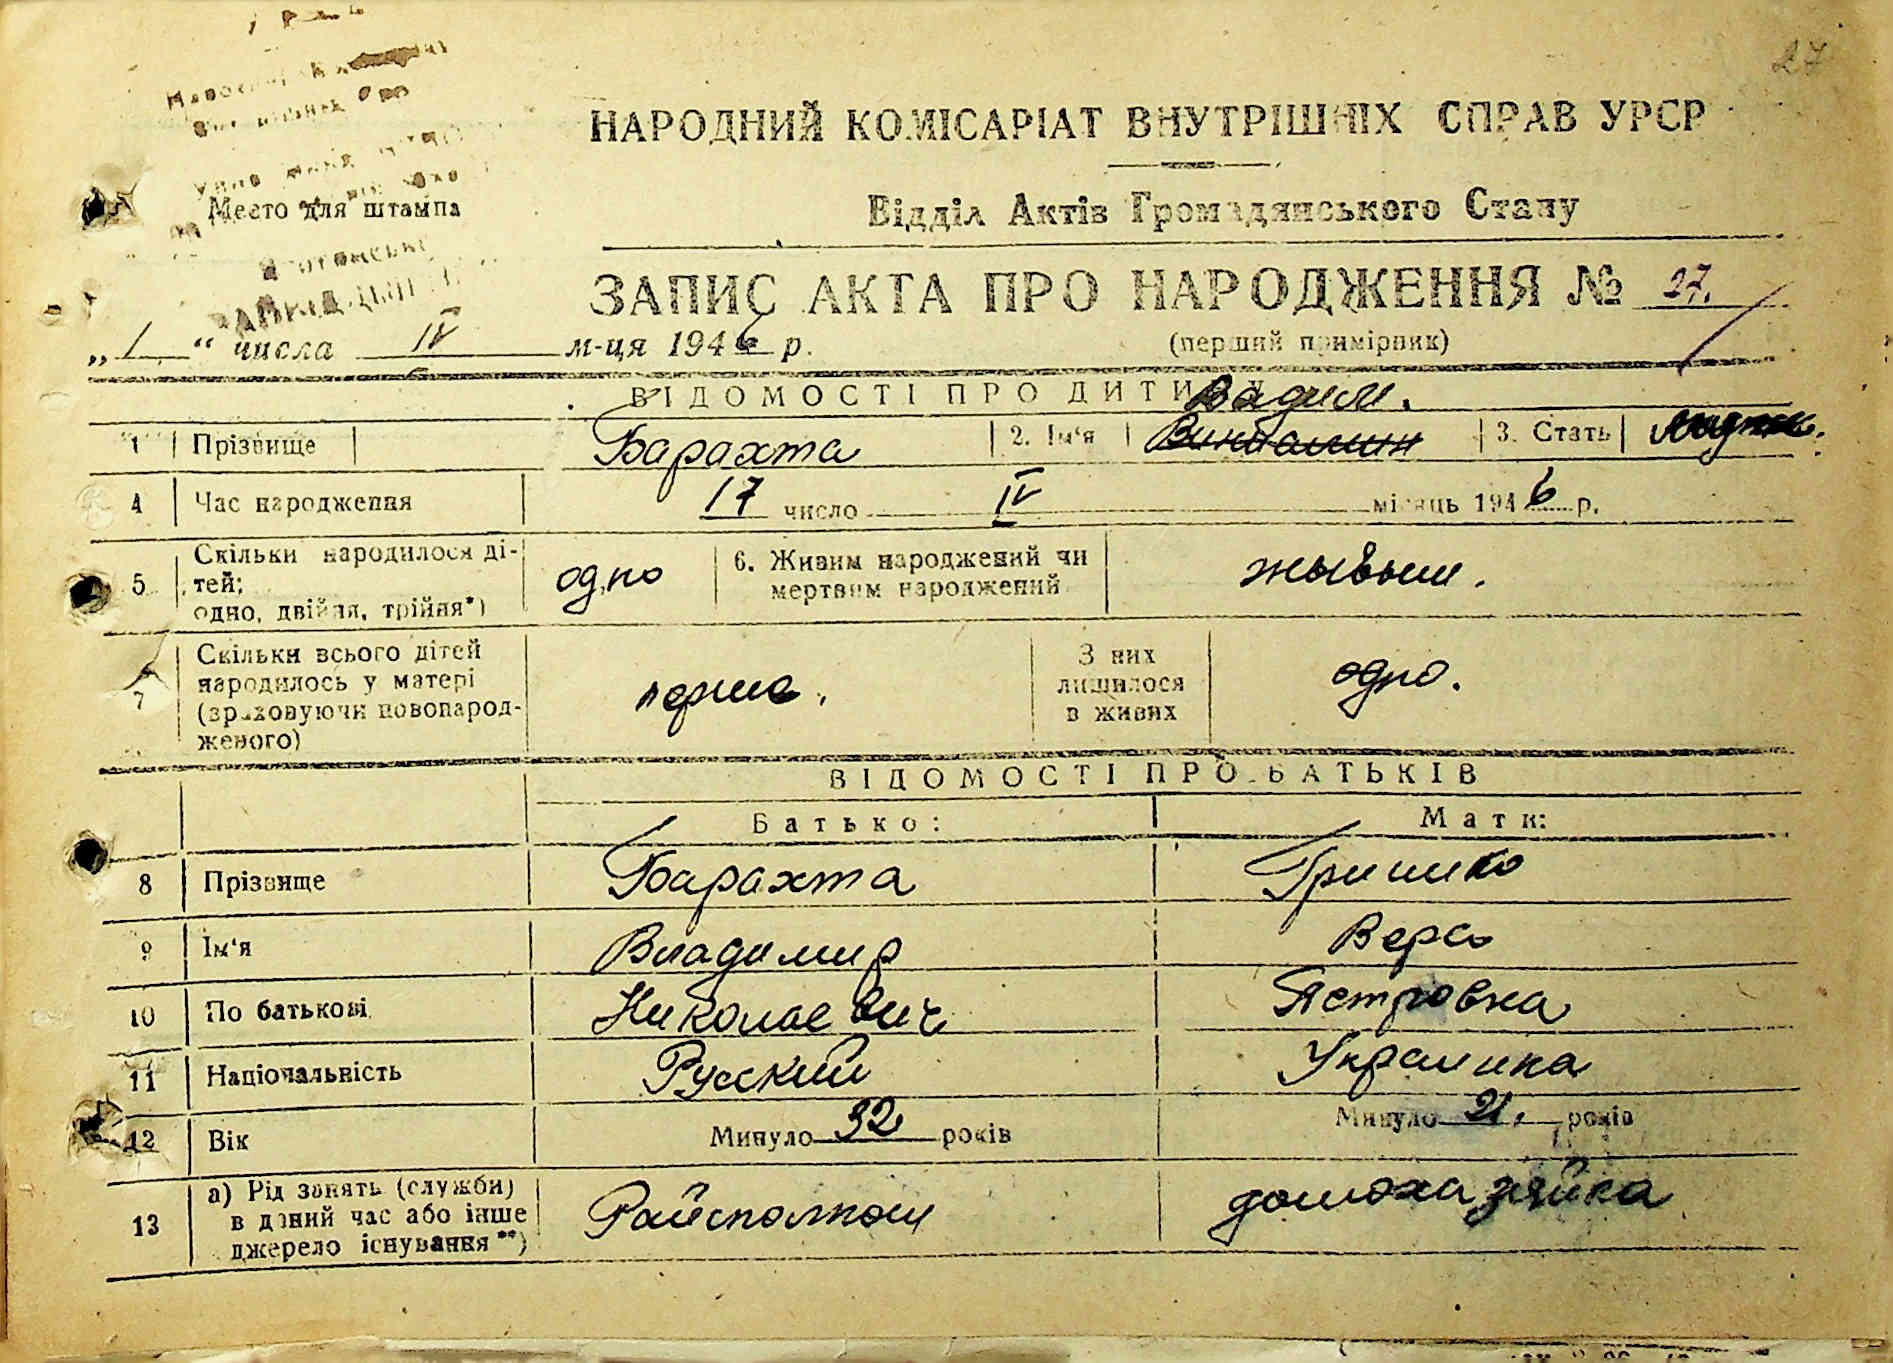 27
НАРОДНИЙ КОМІСАРІАТ ВНУТРІШНІХ СПРАВ УРСР
Место для штампа
Відділ Актів Громадянського Стану
ЗАПИС АКТА ПРО НАРОДЖЕННЯ № 27.
„1“ числа IV м-ця 1946 р.
(перший примірник)
ВІДОМОСТІ ПРО ДИТИНУ
Вадим.
1 Прізвище Барахта 2. Ім‘я 3. Стать
4 Час народження 17 число IV місяць 1946 р.
5 Скільки народилося ді-
тей;
одно, двійня, трійня*) одно 6. Живим народжений чи
мертвим народжений жывым.
7 Скільки всього дітей
народилось у матері
(враховуючи новонарод-
женого) перше. З них
лишилося
в живих одно.
ВІДОМОСТІ ПРО БАТЬКІВ
Батько: Мати:
8 Прізвище Барахта Гришко
9 Ім‘я Владимир Вера
10 По батькові Николаевич Пєтровна
11 Національність Русский Украинка
12 Вік Минуло 32 років Минуло 21. років
13 а) Рід занять (служби)
в даний час або інше
джерело існування**) Райсполком домохазяйка